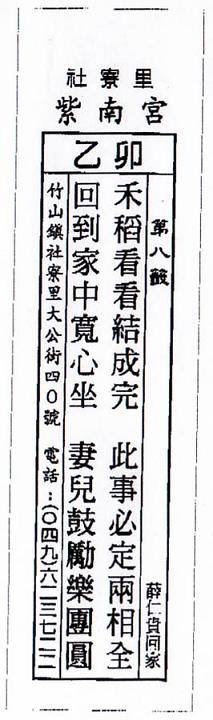 社寮里
紫南宮
乙卯
第八籤 薛仁貴回家
禾稻看看結成完 此事必定兩相全
回到家中寬心坐 妻兒鼓勵樂團圓
竹山鎮社寮里大公街四〇號 電話：(〇四九)六二三七二二